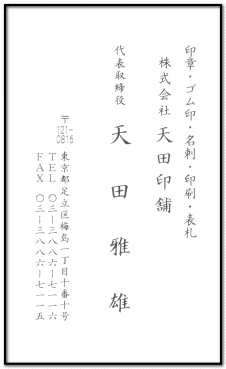 印章・ゴム印・名刺・印刷・表札
株式会社 天田印舗
代表取締役 天田雅雄
〒121-0816 東京都足立区梅島一丁目十番十号
TEL 〇三ー三八八六ー七一一六
FAX 〇三ー三八八六ー七一一五